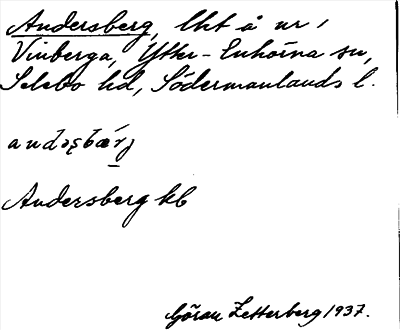 Andersberg, lht å nr 1
Vinberga, Ytter-Enhörna sn,
Selebo hd, Södermanlands l.
Andersberg kb
Göran Zetterberg 1937.